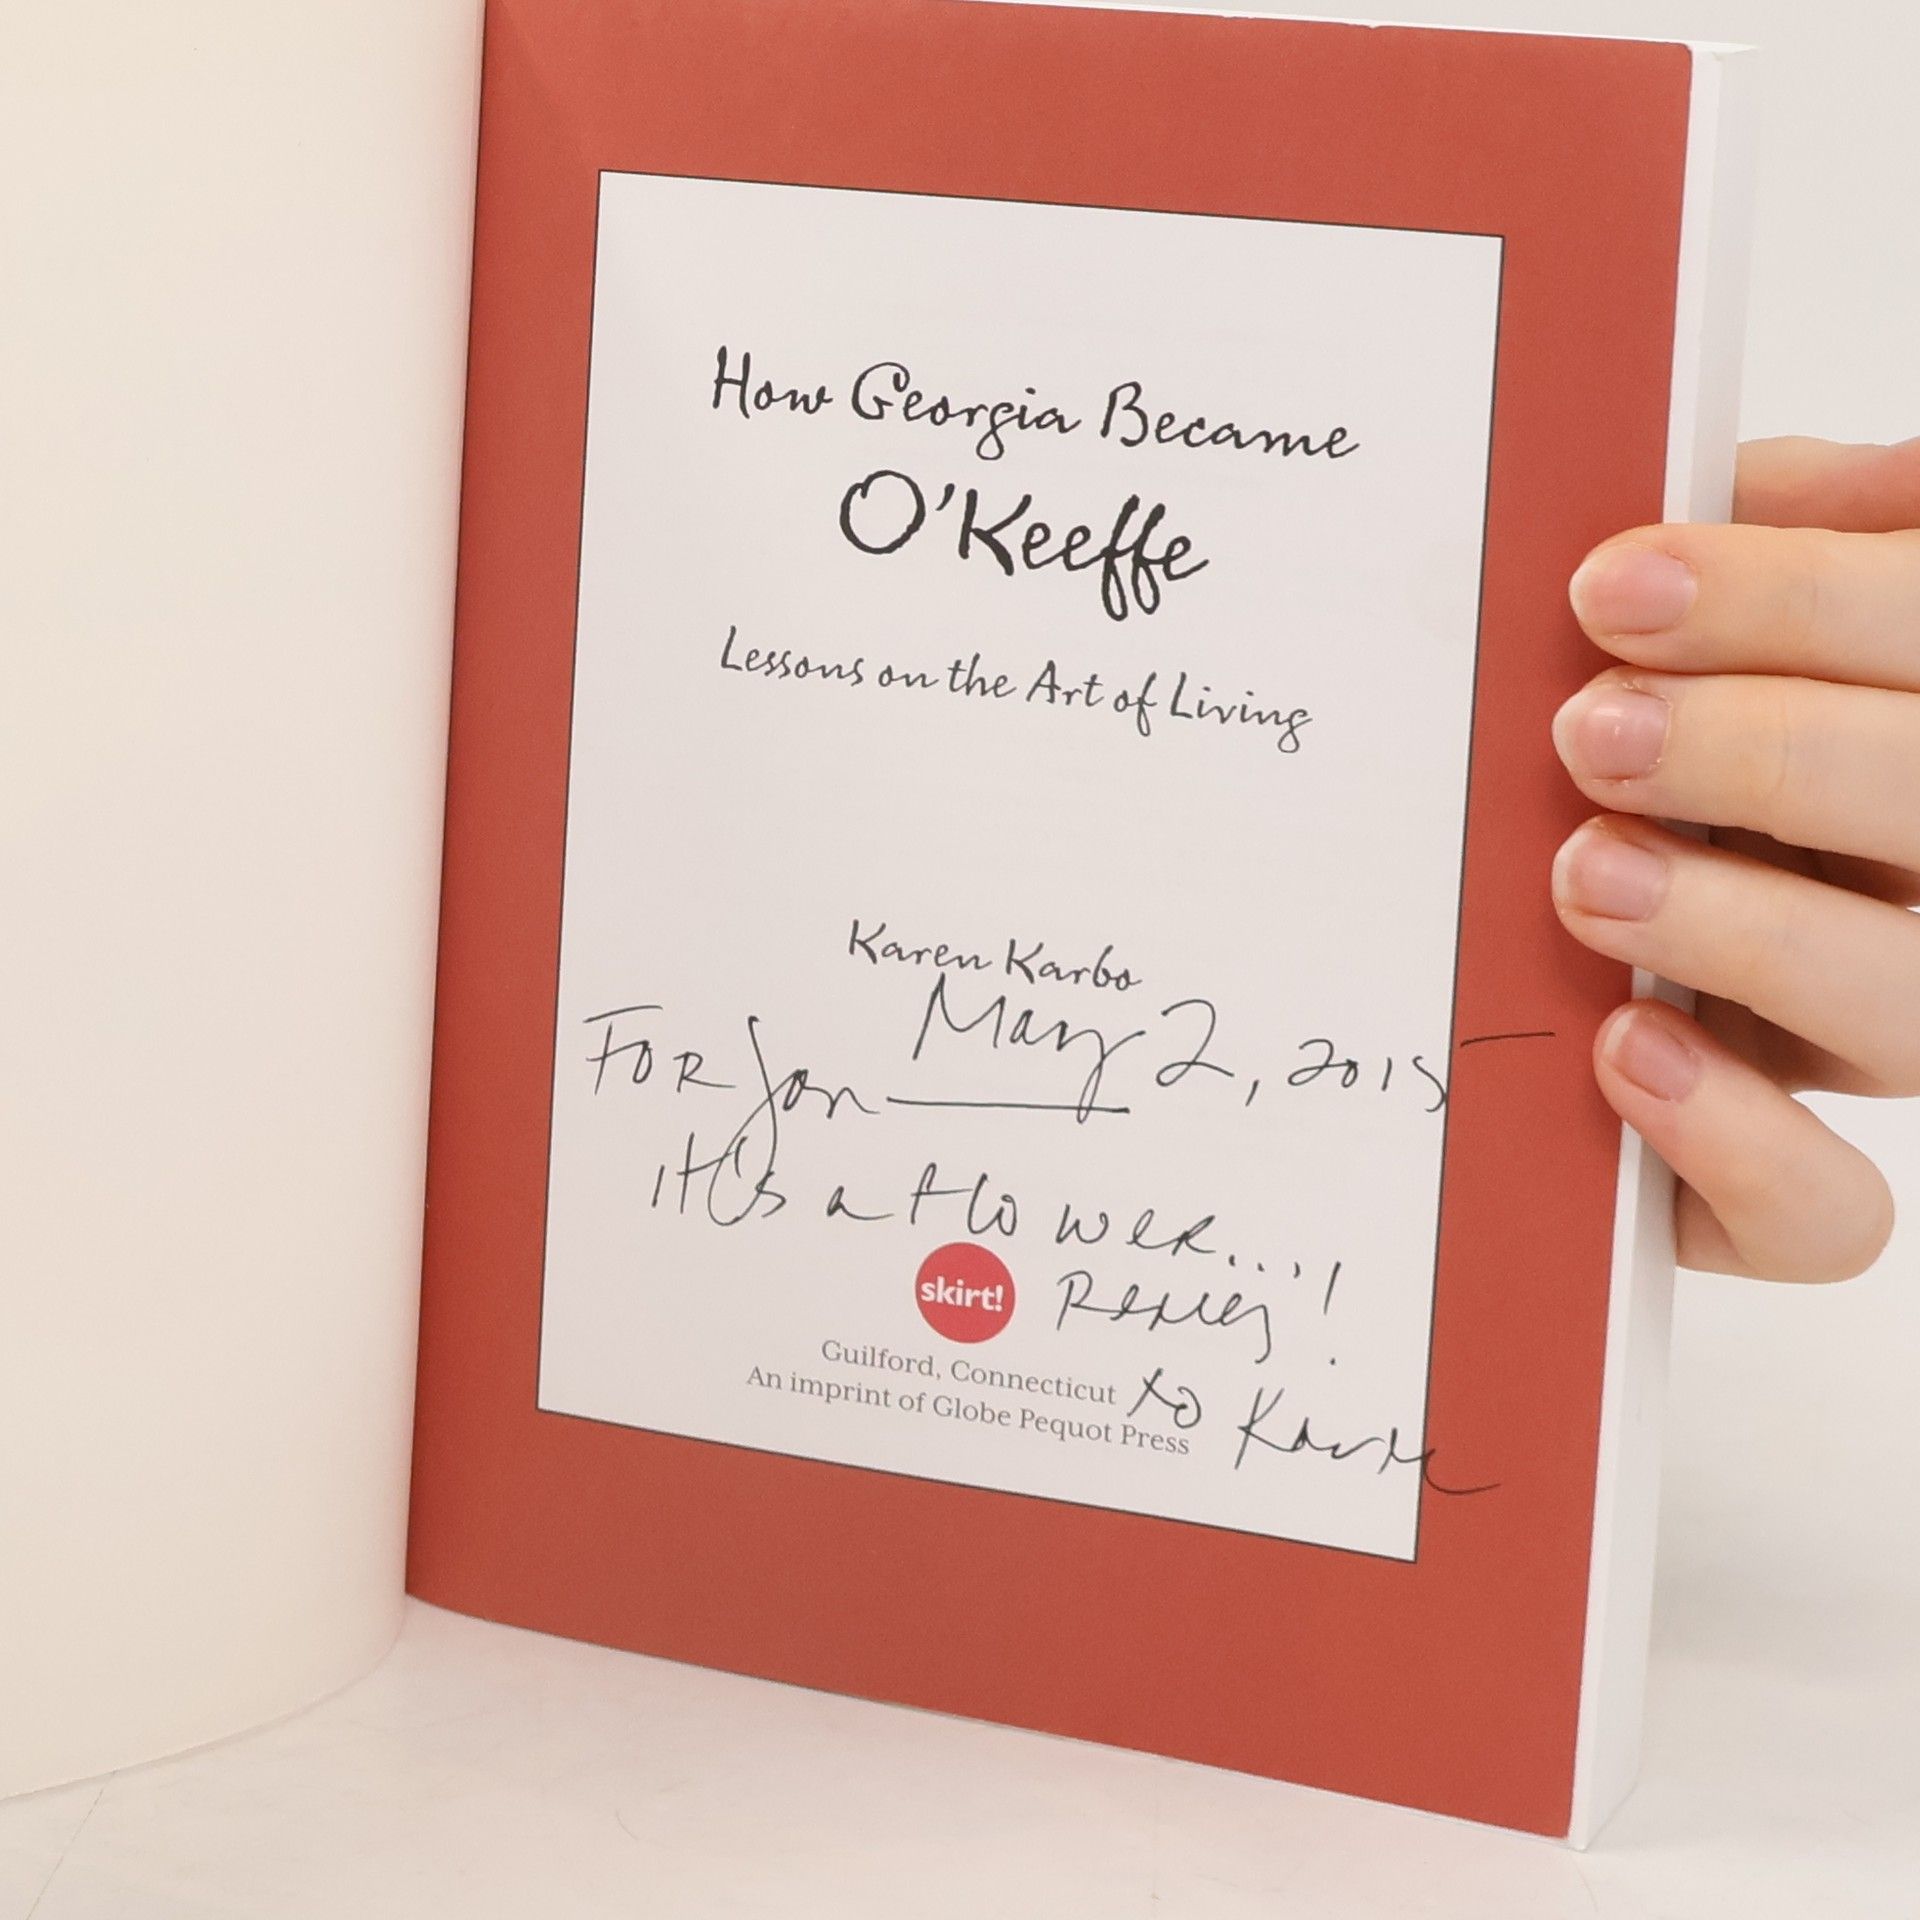 How Georgia Became
O'Keeffe
Lessons on the Art of Living
Karen Karbo
May 2, 2015
FOR Jon
it's a flower...!
skirt! Really!
Guilford, Connecticut
An imprint of Globe Pequot Press
xo Karen